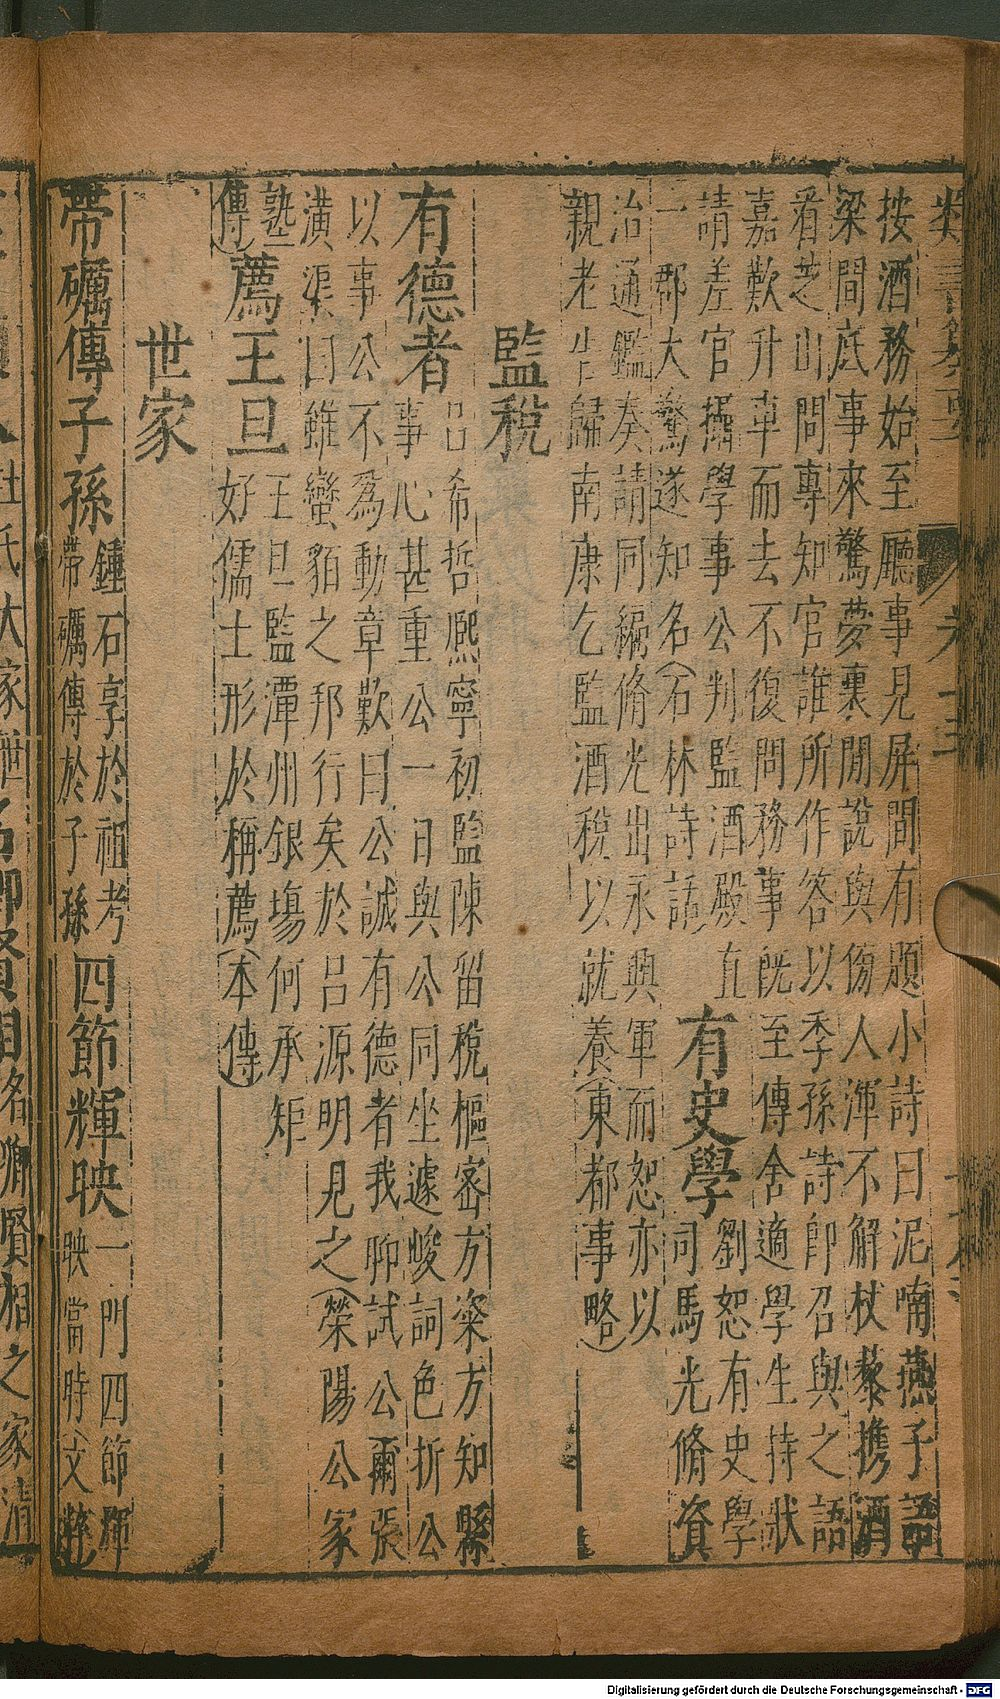 按酒務始至廳事見屏間有題小詩曰泥喃燕子語
梁間底事來驚夢裏閒說與傷人渾不解杖藜携酒
看芝山問專知官誰所作答以季孫詩卽召與之語
嘉歎升車而去不復問務事旣至傳舍適學生持狀
請差官攝學事公判監酒殿直
一郡大驚遂知名(石林詩話)
有史學
劉恕有史學
司馬光脩資
治通鑑奏請同編脩光出永興軍而恕亦以
親老告歸南康乞監酒稅以就養(東都事略)
監稅
有德者
呂希哲熈寧初監陳留稅樞密方粢方知縣
事心甚重公一日與公同坐遽峻詞色折公
以事公不爲動章歎曰公誠有德者我聊試公爾張
潢渠曰雖蠻貊之邦行矣於呂源明見之(榮陽公家
塾
傳)
薦王旦
王旦監潭州銀塲何承矩
好儒士形於稱薦(本傳)
世家
帶礪傳子孫
鍾石享於祖考
帶礪傳於子孫
四節輝映
一門四節輝
映當時(文粹)
Digitalisierung gefördert durch die Deutsche Forschungsgemeinschaft - DFG